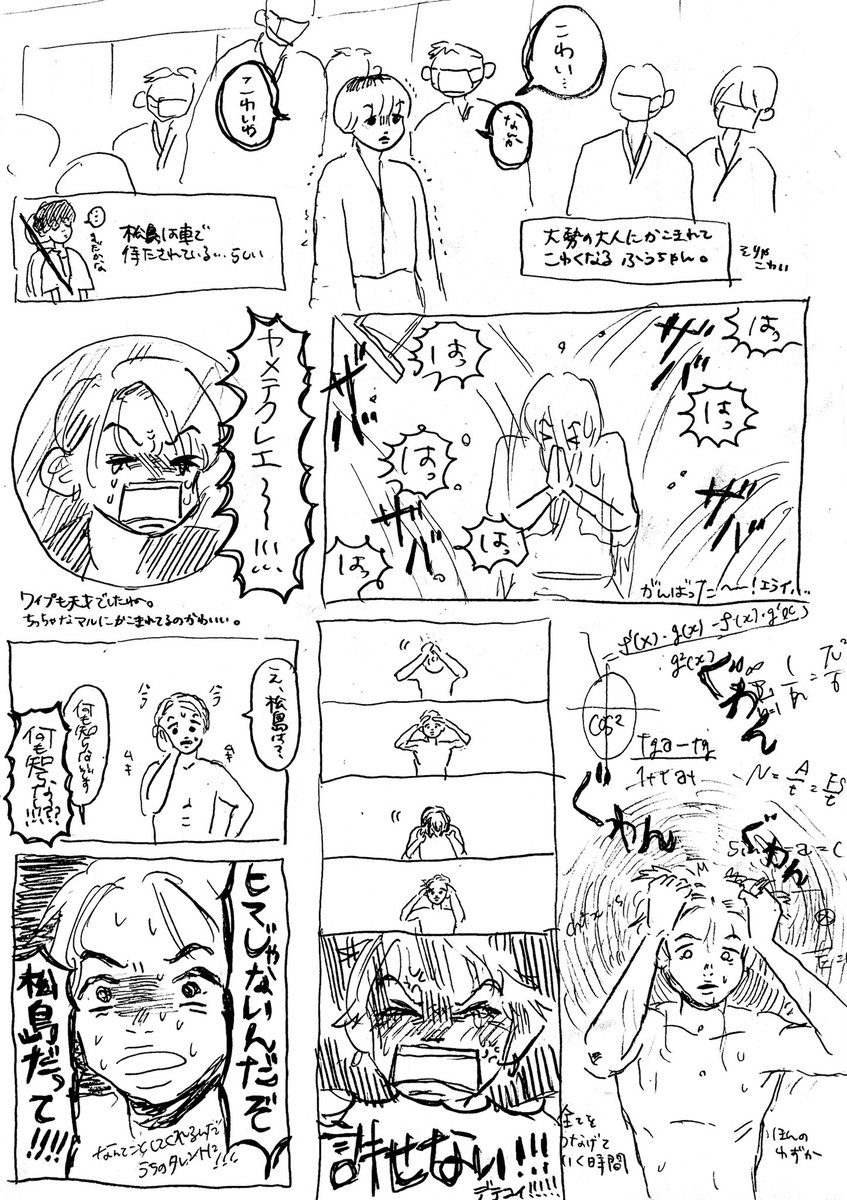 こわい…
なんか
こわいや
…
まだかな
松島は車で
待たされている…らしい
大勢の大人にかこまれて
こわくなる ふうちゃん。
そりゃ
こわい
はっ
はっ
はっ
はっ
はっ
はっ
ザバ
ザバ
ザバ
ザバ
がんばった〜〜!エライ…
ヤメテクレエ〜〜!!!…
ワイプも天才でしたね。
ちっちゃなマルにかこまれてるのかわいい。
え、松島は?
ハラ
ハラ
ムキ
ムキ
何も知らないです
何も知らない??!!!
ヒマじゃないんだぞ
松島だって!!!!
なんてことしてくれるんだ
うちのタレントに!!!
許せない!!!
デテコイ!!!!!
f'(x)・g(x)-f(x)・g'(x)
g²(x)
cos²
ぐわん
ぐわん
ぐわん
全てを
つなげて
いく時間
ほんの
わずか